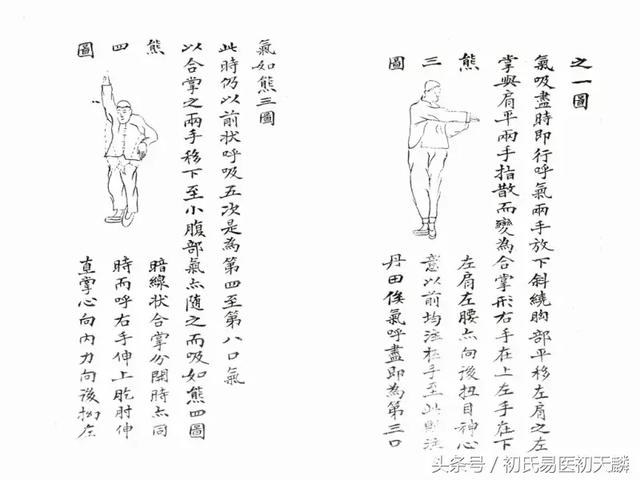 之一圖
氣吸盡時即行呼氣兩手放下斜繞胸部平移左肩之左
掌與肩平兩手指散而變為合掌形右手在上左手在下
熊三圖
左肩左腰点向後扭目神心
意以前均注於手至此則注
丹田俟氣呼盡即為第三口
氣如熊三圖
此時仍以前状呼吸五次是為第四至第八口氣
以合掌之兩手移下至小腹部氣点隨之而吸如熊四圖
熊四圖
暗線状合掌分開時点同
時而呼右手伸上肐肘伸
直掌心向內力向後拗左
头条号/初氏易医初天麟